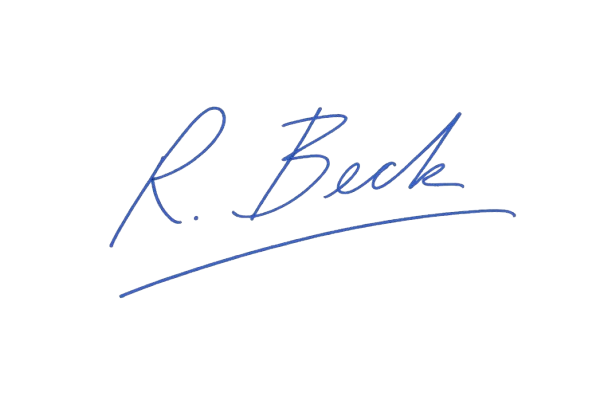 R. Beck